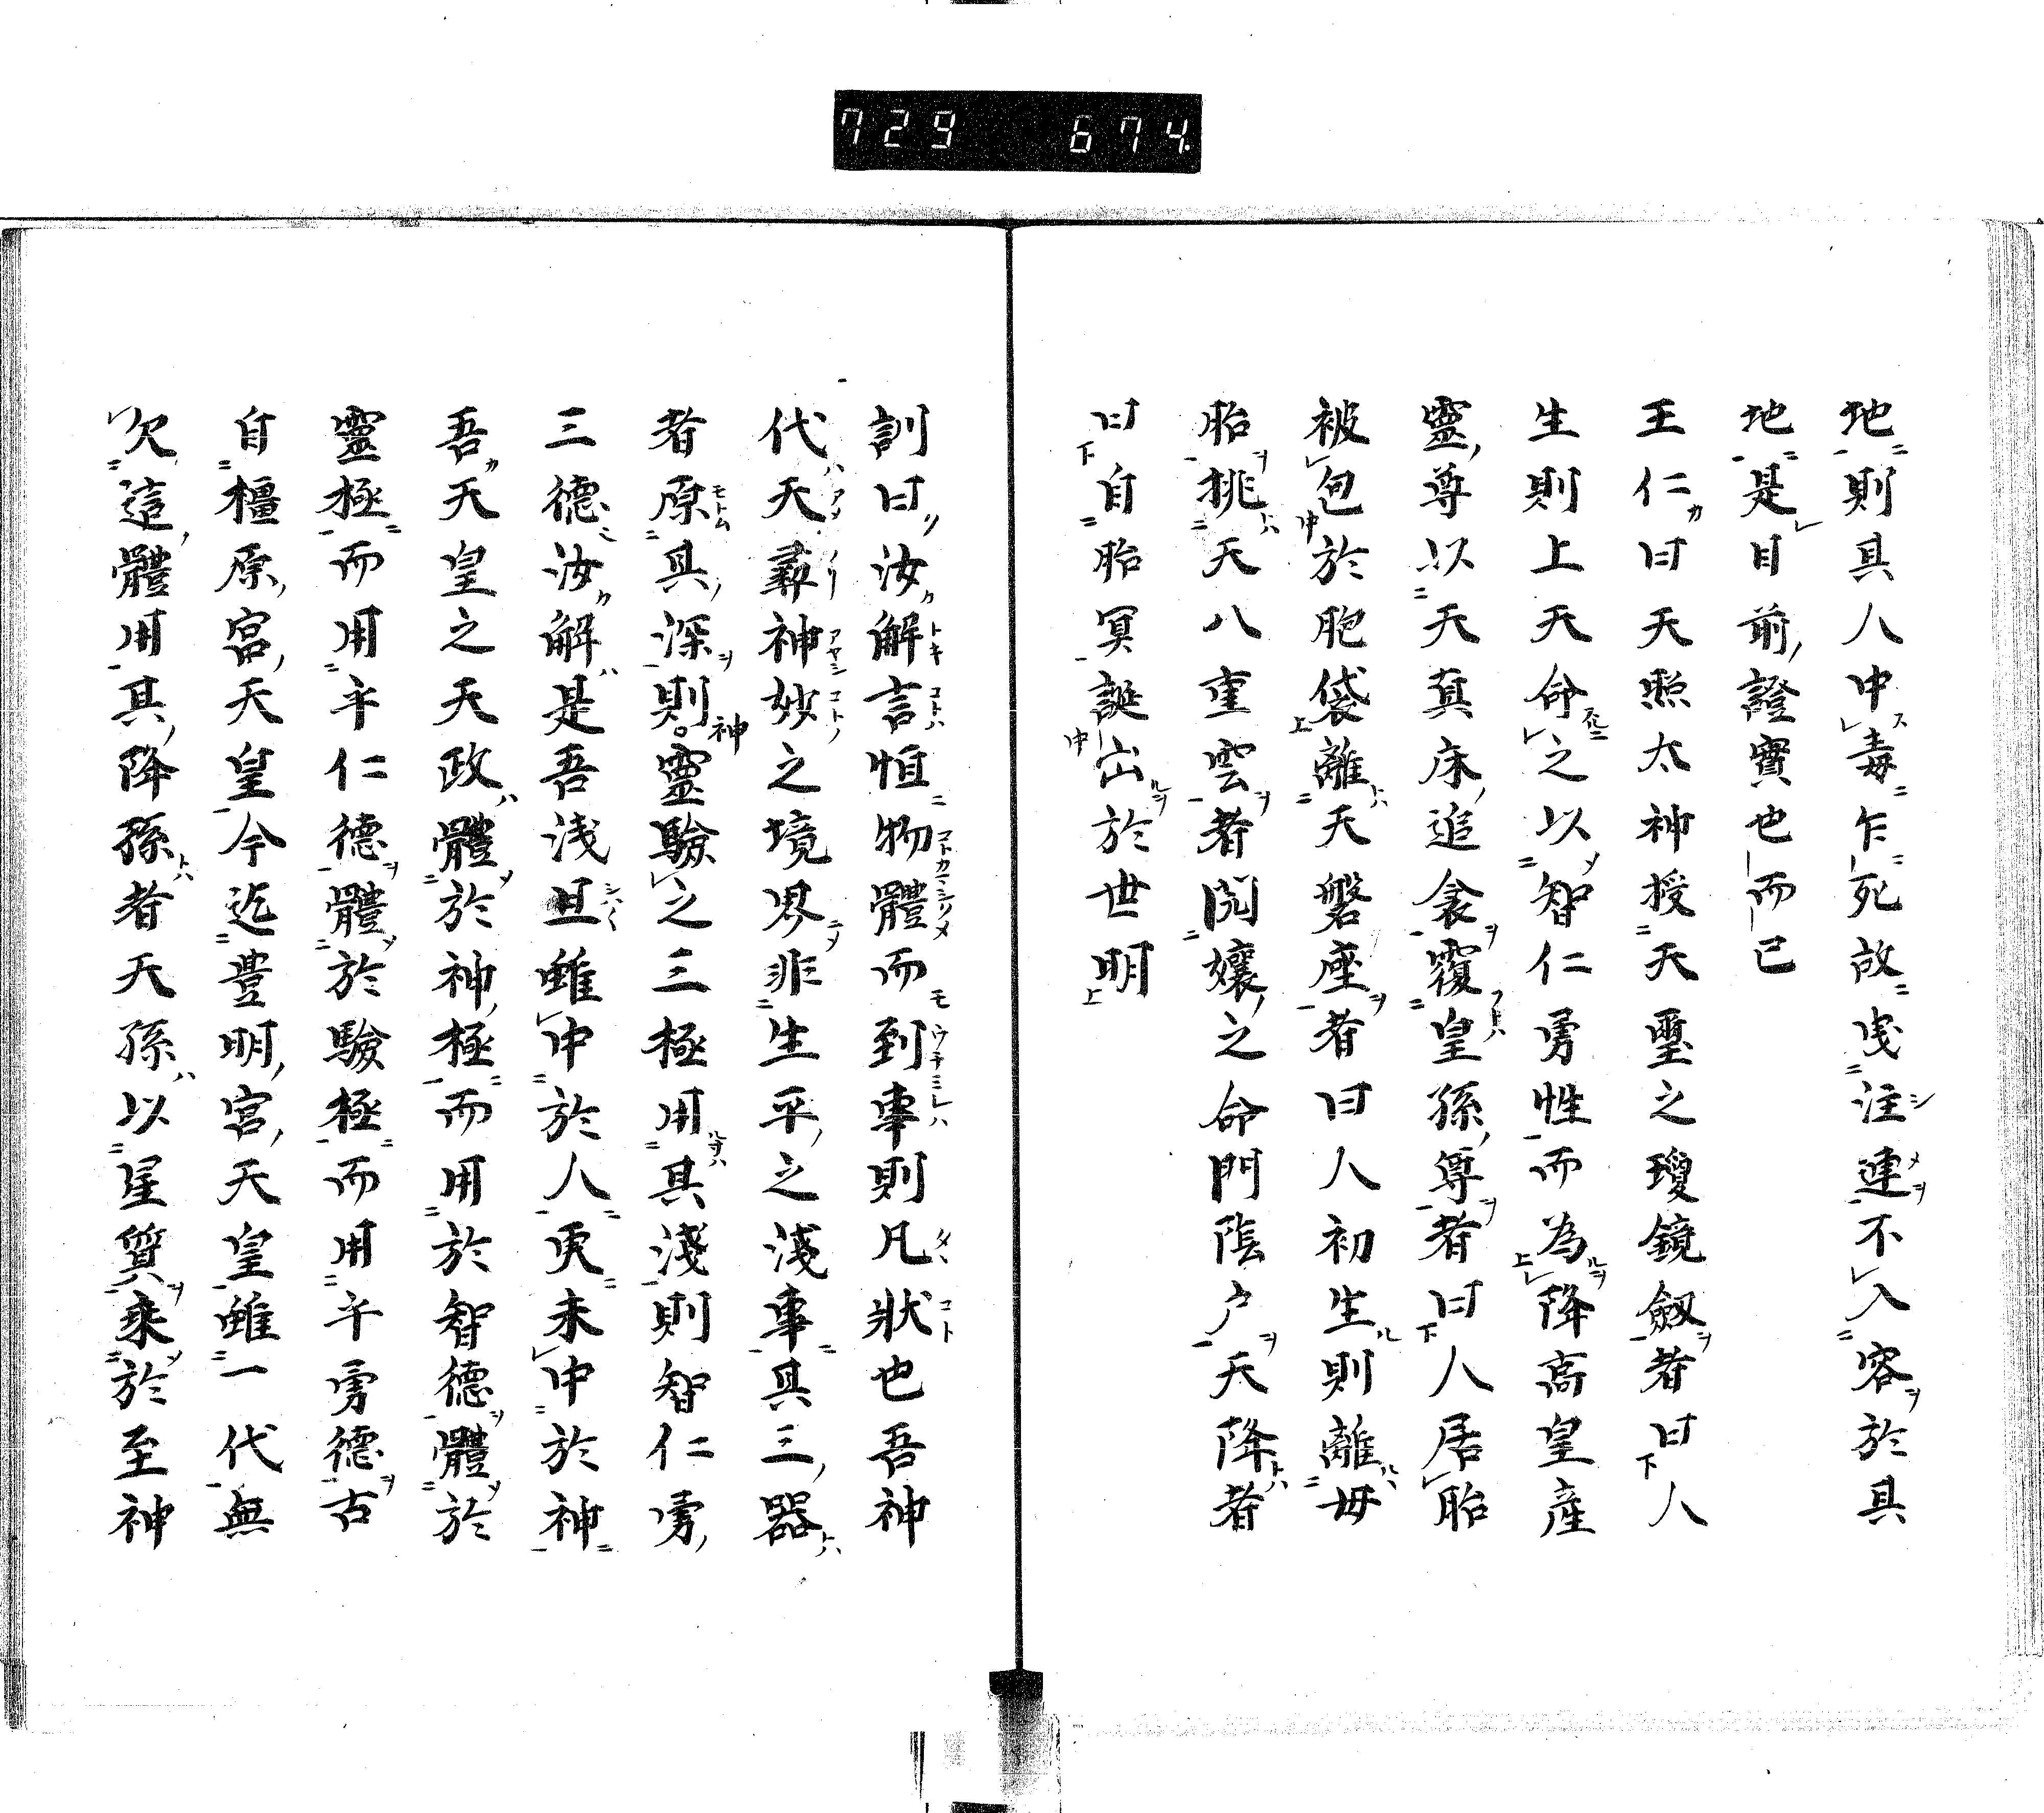 729 674
地則其人中毒乍死故曵注連不入容於其
地是目前證實也而已
王仁曰天照太神授天璽之瓊鏡劔者曰人
生則上天命之以智仁勇性而為降高皇産
靈尊以天真床追衾覆皇孫尊者曰人居胎
被包於胞袋離天磐座者曰人初生則離毋
胎挑天八重雲者閲孃之命門陰户天降者
曰自胎冥誕出於世明
訓曰汝解言恒物體而到事則凡狀也吾神
代天尋神妙之境界非生平之淺事其三器
者原其深則神靈驗之三極用其淺則智仁勇
三德汝解是吾浅且雖中於人更未中於神
吾天皇之天政體於神極而用於智德體於
靈極而用乎仁德體於驗極而用乎勇德古
自橿原宮天皇今迄豊明宮天皇雖一代無
欠這體用其降孫者天孫以星質来於至神